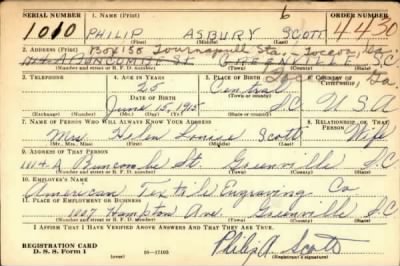 SERIAL NUMBER 1. NAME (Print) ORDER NUMBER
1010 PHILIP ASBURY SCOTT 4450
(First) (Middle) (Last)
2. ADDRESS (Print) Box 158 Tournapull Sta, Toccoa, Ga.
1114-A BUNCOMBE St. GREENVILLE SC
(Number and street or R. F. D. number) (Town) (County) (State)
3. TELEPHONE 4. AGE IN YEARS 5. PLACE OF BIRTH 6. COUNTRY OF CITIZENSHIP
25 Central Ga.
DATE OF BIRTH (Town or county)
June 15, 1915 S.C. U.S.A
(Exchange) (Number) (Mo.) (Day) (Yr.) (State or country)
7. NAME OF PERSON WHO WILL ALWAYS KNOW YOUR ADDRESS 8. RELATIONSHIP OF THAT PERSON
Mrs Helen Louise Scott Wife
(Mr., Mrs., Miss) (First) (Middle) (Last)
9. ADDRESS OF THAT PERSON
1114-A Buncombe St. Greenville S.C
(Number and street or R. F. D. number) (Town) (County) (State)
10. EMPLOYER'S NAME
American Textile Engraving Co
11. PLACE OF EMPLOYMENT OR BUSINESS
1227 Hampton Ave. Greenville S.C
(Number and street or R. F. D. number) (Town) (County) (State)
I AFFIRM THAT I HAVE VERIFIED ABOVE ANSWERS AND THAT THEY ARE TRUE.
REGISTRATION CARD
D. S. S. Form 1 16—17105 Philip A. Scott
(Registrant's signature)